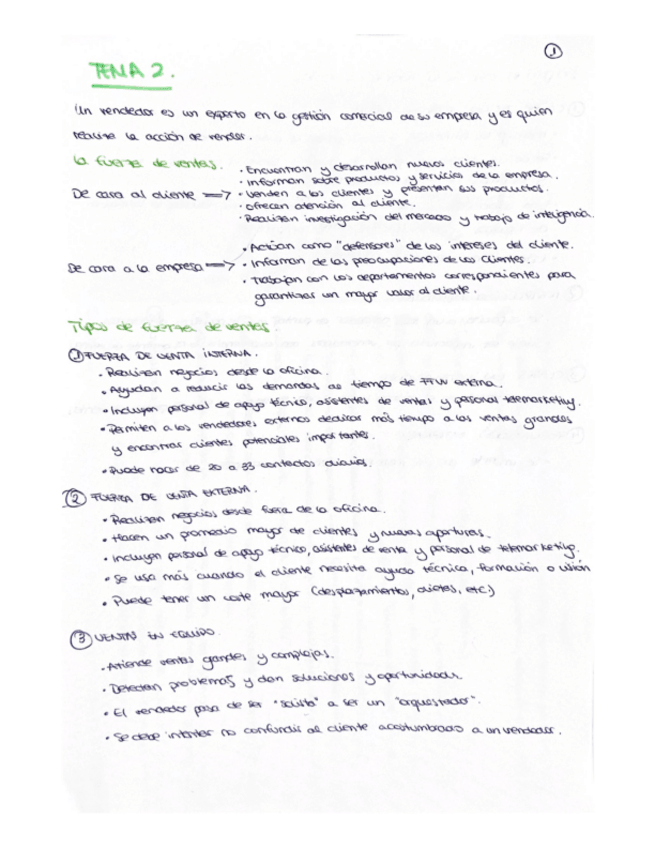 1
TEMA 2.
Un vendedor es un experto en la gestión comercial de su empresa y es quien
realiza la acción de vender.
La fuerza de ventas.
De cara al cliente ⇒
· Encuentran y desarrollan nuevos clientes.
· Informan sobre productos y servicios de la empresa.
· Venden a los clientes y presentan sus productos.
· Ofrecen atención al cliente.
· Realizan investigación del mercado y trabajo de inteligencia.
De cara a la empresa ⇒
· Actúan como "defensores" de los intereses del cliente.
· Informan de las preocupaciones de los clientes.
· Trabajan con los departamentos correspondientes para
garantizar un mayor valor al cliente.
Tipos de fuerza de ventas.
1 FUERZA DE VENTA INTERNA.
· Realizan negocios desde la oficina.
· Ayudan a reducir las demandas de tiempo de externa.
· Incluyen personal de apoyo técnico, asistentes de ventas y personal telemarketing.
· Permiten a los vendedores externos dedicar más tiempo a las ventas grandes
y encontrar clientes potenciales importantes.
· Puede hacer de 20 a 33 contactos diarios.
2 FUERZA DE VENTA EXTERNA.
· Realizan negocios desde fuera de la oficina.
· Hacen un promedio mayor de clientes y nuevas aperturas.
· Incluyen personal de apoyo técnico, asistentes de venta y personal de telemarketing.
· Se usa más cuando el cliente necesita ayuda técnica, formación o visión
· Puede tener un coste mayor (desplazamientos, dietas, etc)
3 VENTAS EN EQUIPO.
· Atiende ventas grandes y complejas.
· Detectan problemas y dan soluciones y oportunidades.
· El vendedor pasa de ser "solista" a ser un "orquestador".
· Se debe intentar no confundir al cliente acostumbrado a un vendedor.